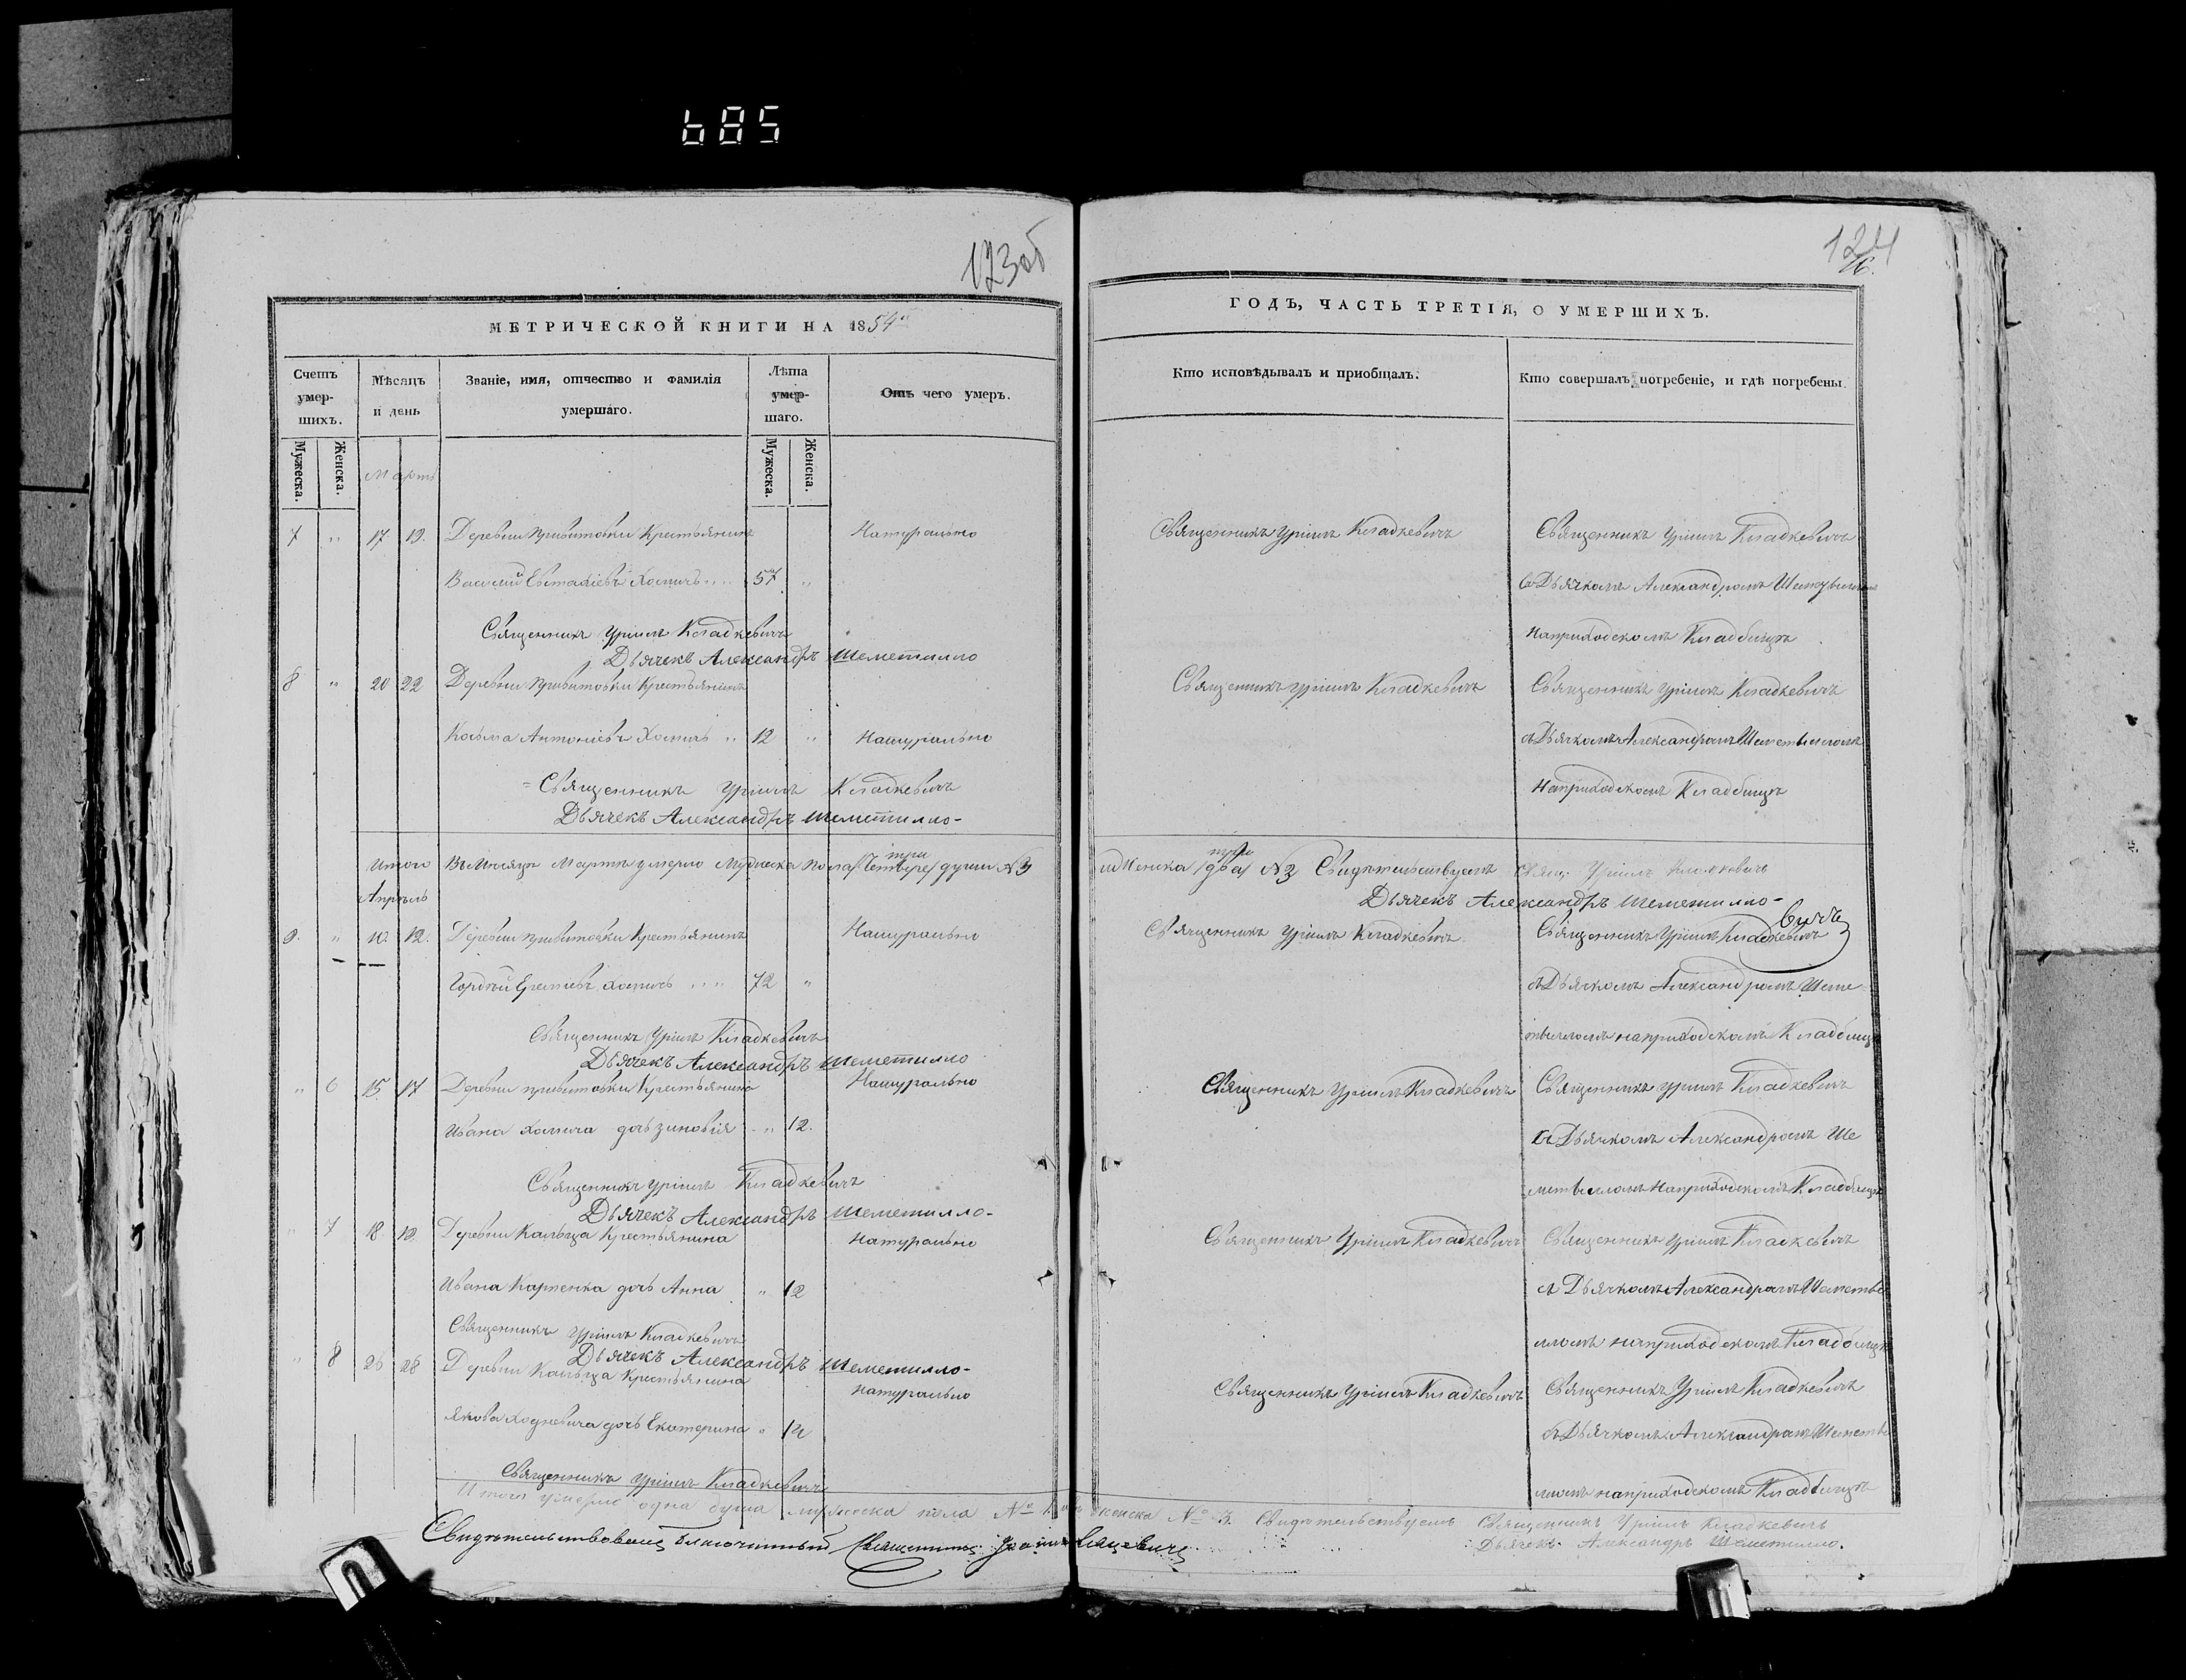 685
123об
124
16.
МЕТРИЧЕСКОЙ КНИГИ НА 1854й
Счетъ умер-шихъ.
Мѣсяцъ и день
Званіе, имя, отчество и фамилія умершаго.
Лѣта умер-шаго.
Отъ чего умеръ.
Мужеска.
Женска.
Мужеска.
Женска.
Мартъ
7 " 17 19. Деревни Крестьянинъ Натурально
Василій Евстафіевъ Хомичъ 57 "
Священникъ Уріилъ Кладкевичъ
Дьячекъ Александръ Шеметилло
8 " 20 22 Деревни Крестьянинъ
Косьма Антоніевъ Хомичъ " 12 " Натурально
Священникъ Уріилъ Кладкевичъ
Дьячекъ Александръ Шеметилло-
Итого Въ Мѣсяцѣ Мартѣ умерло Мужеска пола (Четыре) три души №3
Апрѣль
9. " 10. 12. Деревни Крестьянинъ Натурально
Гордѣй Хомичъ 72 "
Священникъ Уріилъ Кладкевичъ
Дьячекъ Александръ Шеметилло
" 6 15 17 Деревни Крестьянина Натурально
Ивана Хомича дочь Зиновія " 12.
Священникъ Уріилъ Кладкевичъ
Дьячекъ Александръ Шеметилло-
" 7 18. 19. Деревни Крестьянина Натурально
Ивана Карпенка дочь Анна " 12
Священникъ Уріилъ Кладкевичъ
Дьячекъ Александръ Шеметилло-
" 8 26 28 Деревни Крестьянина Натурально
Якова Ходневича дочь Екатерина "
Священникъ Уріилъ Кладкевичъ
Итого умерло одна душа мужеска пола № 1
Свидѣтельствовалъ Благочинный Священникъ
ГОДЪ, ЧАСТЬ ТРЕТІЯ, О УМЕРШИХЪ.
Кто исповѣдывалъ и пріобщалъ.
Кто совершалъ погребеніе, и гдѣ погребены.
Священникъ Уріилъ Кладкевичъ Священникъ Уріилъ Кладкевичъ
съ Дьячкомъ Александромъ
на приходскомъ Кладбищѣ
Священникъ Уріилъ Кладкевичъ Священникъ Уріилъ Кладкевичъ
съ Дьячкомъ Александромъ Шеметилломъ
на приходскомъ Кладбищѣ
и Женска (два) три №3 Свидѣтельствуемъ Свящ. Уріилъ Кладкевичъ
Дьячекъ Александръ Шеметилло-
Священникъ Уріилъ Кладкевичъ Священникъ Уріилъ Кладкевичъ
вичъ
съ Дьячкомъ Александромъ Шеме
тилломъ на приходскомъ Кладбищѣ
Священникъ Уріилъ Кладкевичъ Священникъ Уріилъ Кладкевичъ
съ Дьячкомъ Александромъ Ше
метилломъ на приходскомъ Кладбищѣ
Священникъ Уріилъ Кладкевичъ Священникъ Уріилъ Кладкевичъ
съ Дьячкомъ Александромъ Шемети
лломъ на приходскомъ Кладбищѣ
Священникъ Уріилъ Кладкевичъ Священникъ Уріилъ Кладкевичъ
съ Дьячкомъ Александромъ Шемети
лломъ на приходскомъ Кладбищѣ
женска № 3. Свидѣтельствуемъ Священникъ Уріилъ Кладкевичъ
Дьячекъ Александръ Шеметилло.